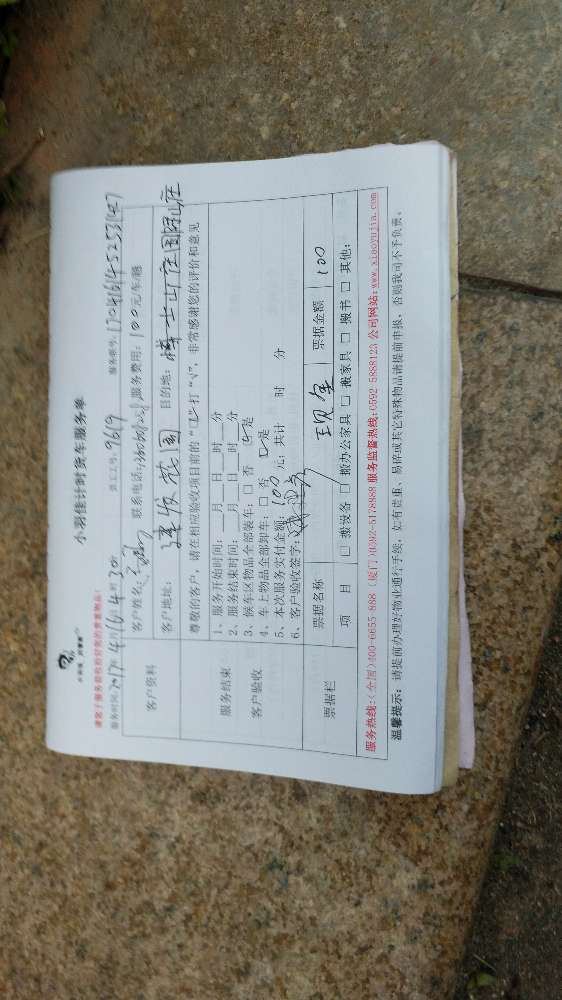 小羽佳计时货车服务单
服务时间: 2017年4月16日
员工工号: 1619
服务账号:
客户资料
客户姓名:
联系电话:
服务费用: 100元车趟
客户地址: 建发花园
目的地: 博士山庄
尊敬的客户,请在相应验收项目前的“口”打“√”,非常感谢您的评价和意见
服务结束
客户验收
1、服务开始时间:___月___日___时___分
2、服务结束时间:___月___日___时___分
3、候车区物品全部装车: □ 否 ☑是
4、车上物品全部卸车: □ 否 ☑是
5、本次服务实付金额: 100 元; 共计 时 分
6、客户验收签字:
票据栏
票据名称
现金
票据金额
100
项 目
□ 搬设备 □ 搬办公家具 □ 搬家具 □ 搬书 □ 其他:
服务热线:(全国)400-6655-888 (厦门)0592-5178888 服务监督热线:0592-5888123 公司网站:www.xiaoyujia.com
温馨提示: 请提前办理好物业通行手续, 如有贵重、易碎或其它特殊物品请提前申报, 否则我司不予负责。